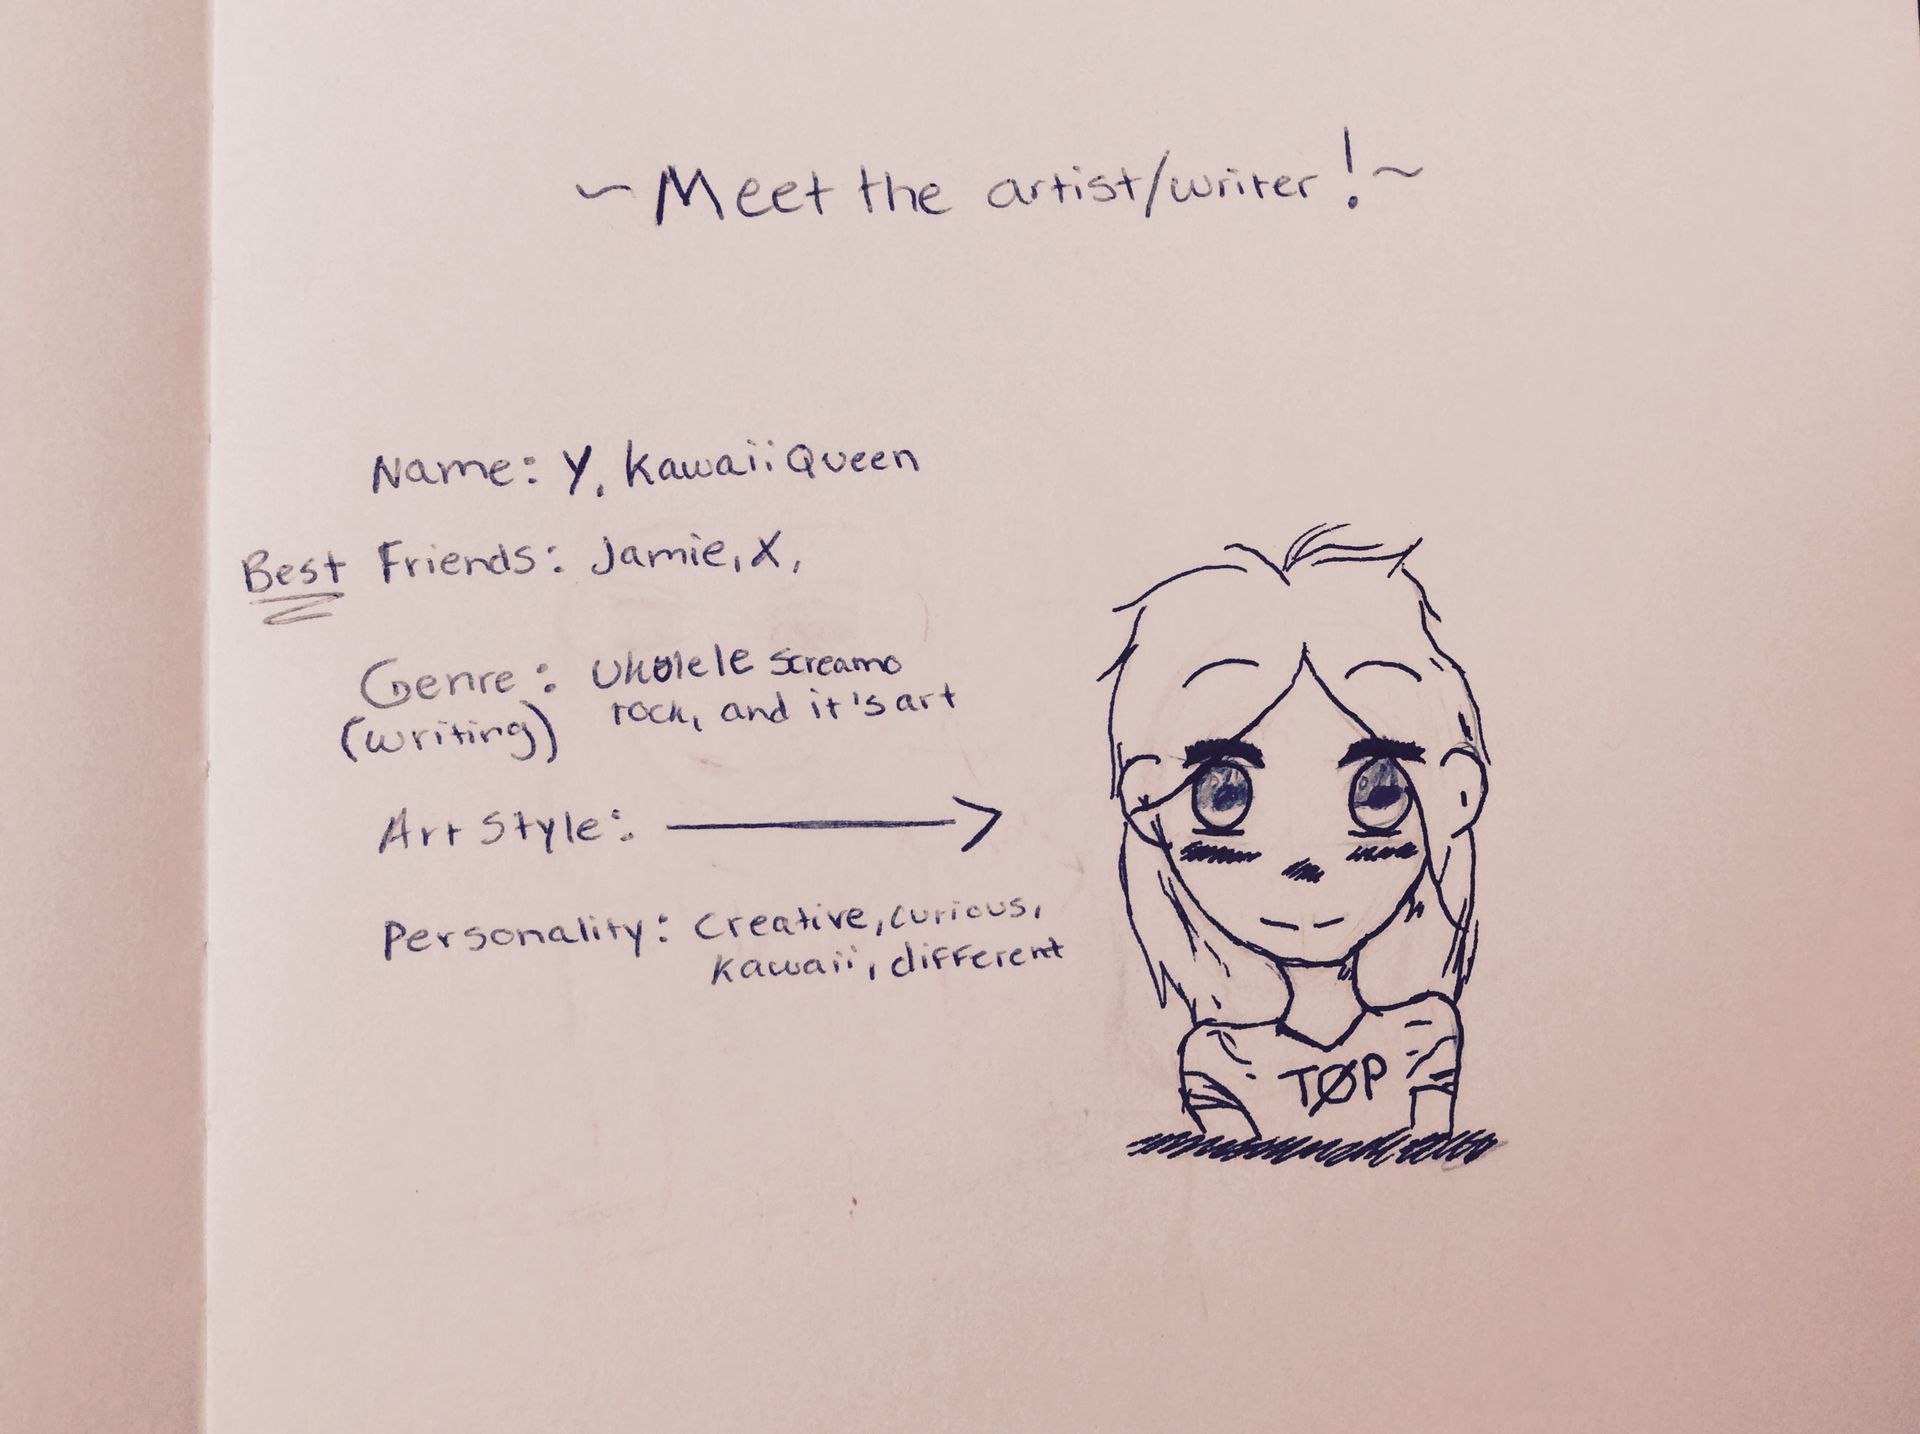 ~Meet the artist/writer!~
Name: Y. Kawaii Queen
Best Friends: Jamie, X,
Genre: Ukulele screamo
(writing) rock, and it's art
Art Style:
Personality: Creative, curious,
Kawaii, different
TØP